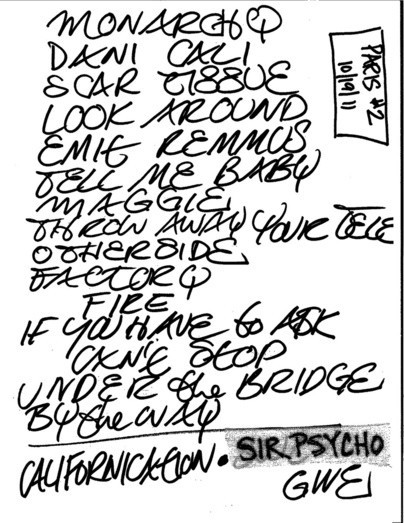 MONARCHY
DANI CALI
SCAR TISSUE
LOOK AROUND
EMIT REMMUS
TELL ME BABY
MAGGIE
THROW AWAY YOUR TELE
OTHERSIDE
FACTORY
FIRE
IF YOU HAVE to ASK
CAN'T STOP
UNDER the BRIDGE
BY the WAY
CALIFORNICATION • SIR PSYCHO
GWE
PARIS #2
10/19/11